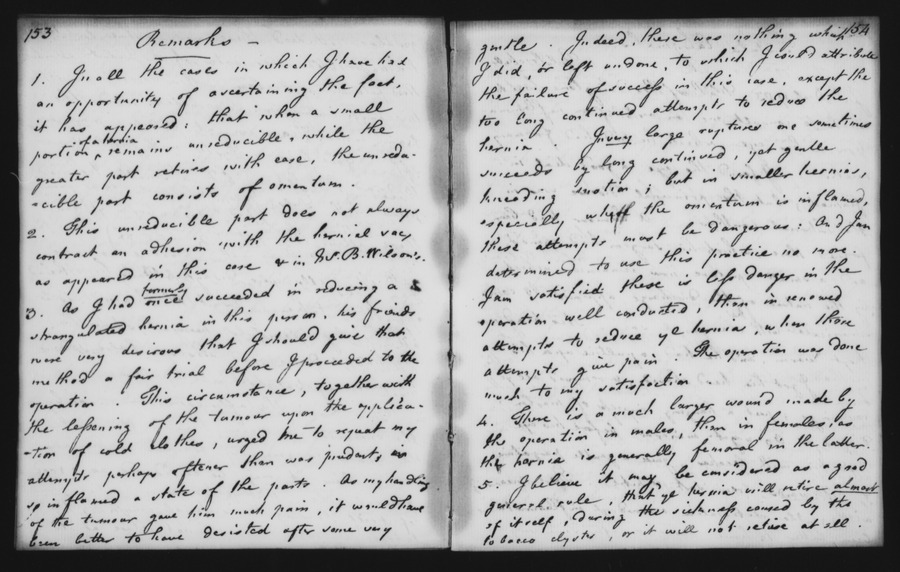 153
Remarks —
1. In all the cases in which I have had
an opportunity of ascertaining the fact,
it has appeared: that when a small
portion of a hernia remains unreducible, while the
greater part retires with ease, the unredu-
-cible part consists of omentum.
2. This unreducible part does not always
contract an adhesion with the hernial sac,
as appeared in this case & in Mr. B. Wilson's.
3. As I had formerly once succeeded in reducing a
strangulated hernia in this person, his friends
were very desirous that I should give that
method a fair trial before I proceeded to the
operation. This circumstance, together with
the lessening of the tumour upon the applica-
-tion of cold clothes, urged me to repeat my
attempts perhaps oftener than was prudent, in
so inflamed a state of the parts. As my handling
of the tumour gave him much pain, it would have
been better to have desisted after some very
154
gentle. Indeed, there was nothing which
I did, or left undone, to which I could attribute
the failure of success in this case, except the
too long continued attempts to reduce the
hernia. In very large ruptures one sometimes
succeeds by long continued, yet gentle
kneading motion; but in smaller hernias,
especially when the omentum is inflamed,
these attempts must be dangerous: And I am
determined to use this practice no more.
I am satisfied there is less danger in the
operation well conducted, than in renewed
attempts to reduce ye hernia, when those
attempts give pain. The operation was done
much to my satisfaction.
4. There is a much larger wound made by
the operation in males, than in females, as
the hernia is generally femoral in the latter.
5. I believe it may be considered as a good
general rule, that ye hernia will retire almost
of itself, during the sickness caused by the
tobacco clyster, or it will not retire at all.